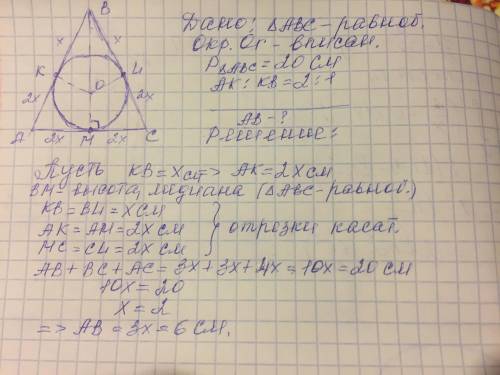 B
x
x
K
Ц
O
2x
2x
A
2x
M
2x
C
Дано: ΔABC - равноб.
Окр. Or - вписан.
PΔABC = 20 см
AK : KB = 2 : 1
AB - ?
Решение:
Пусть KB = x см => AK = 2x см
BM - высота, медиана (ΔABC - равноб.)
KB = BЦ = x см
AK = AM = 2x см
MC = CЦ = 2x см
отрезки касат.
AB + BC + AC = 3x + 3x + 4x = 10x = 20 см
10x = 20
x = 2
=> AB = 3x = 6 см.